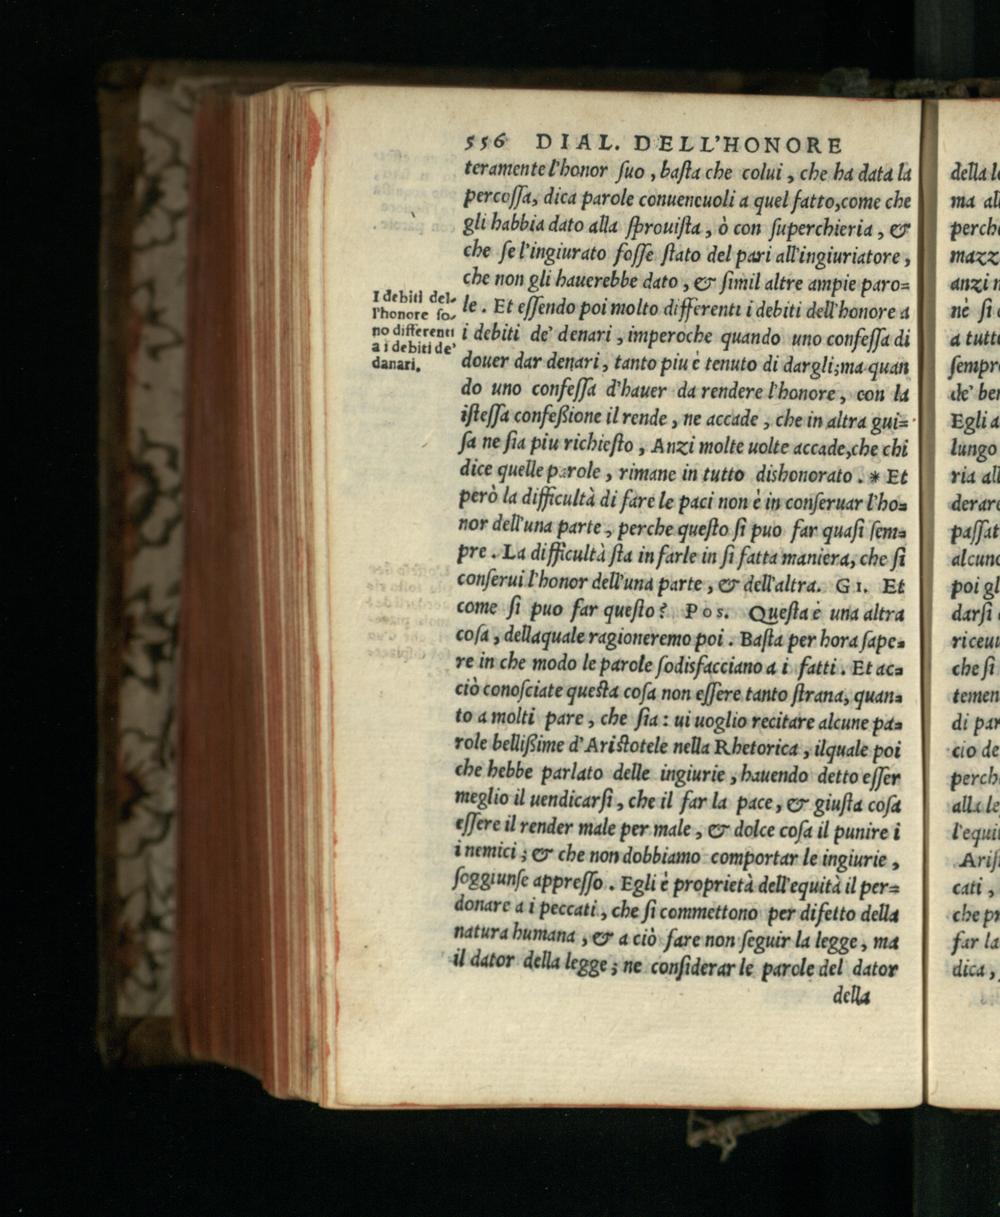 556 DIAL. DELL'HONORE
teramente l'honor ſuo, baſta che colui, che ha data la
percoſſa, dica parole conueneuoli a quel fatto, come che
gli habbia dato alla ſprouiſta, ò con ſuperchieria, &
che ſe l'ingiurato foſſe ſtato del pari all'ingiuriatore,
che non gli hauerebbe dato, & ſimil altre ampie paro=
le. Et eſſendo poi molto differenti i debiti dell'honore a
i debiti de' denari, imperoche quando uno confeſſa di
douer dar denari, tanto piu è tenuto di dargli; ma quan
do uno confeſſa d'hauer da rendere l'honore, con la
iſteſſa confeßione il rende, ne accade, che in altra gui=
ſa ne ſia piu richieſto, Anzi molte uolte accade, che chi
dice quelle parole, rimane in tutto dishonorato. * Et
però la difficultà di fare le paci non è in conſeruar l'ho=
nor dell'una parte, perche queſto ſi puo far quaſi ſem=
pre. La difficultà ſta in farle in ſi fatta maniera, che ſi
conſerui l'honor dell'una parte, & dell'altra. GI. Et
come ſi puo far queſto? POS. Queſta è una altra
coſa, dellaquale ragioneremo poi. Baſta per hora ſape=
re in che modo le parole ſodisfacciano a i fatti. Et ac=
ciò conoſciate queſta coſa non eſſere tanto ſtrana, quan=
to a molti pare, che ſia: ui uoglio recitare alcune pa=
role bellißime d'Ariſtotele nella Rhetorica, ilquale poi
che hebbe parlato delle ingiurie, hauendo detto eſſer
meglio il uendicarſi, che il far la pace, & giuſta coſa
eſſere il render male per male, & dolce coſa il punire i
i nemici; & che non dobbiamo comportar le ingiurie,
ſoggiunſe appreſſo. Egli è proprietà dell'equità il per=
donare a i peccati, che ſi commettono per difetto della
natura humana, & a ciò fare non ſeguir la legge, ma
il dator della legge; ne conſiderar le parole del dator
della
I debiti del-
l'honore ſo-
no differenti
a i debiti de'
danari.
della le
ma all
perche
mazz
anzi n
nè ſi c
a tutto
ſempre
de' ben
Egli a
lungo
ria all
derar
paſſat
alcuno
poi gl
darſi
riceuu
che ſi
temen
di par
cio de
perch
alla le
l'equi
Ariſ
cati,
che pr
far la
dica,